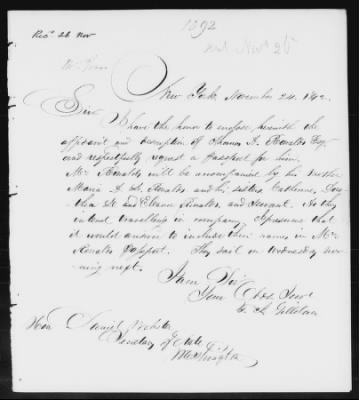 1092
Recd 26 Nov
New York, November 24. 1842.
Sir
I have the honor to enclose, herewith the
affidavit and description of Thomas A. Ronalds Esqr
and respectfully request a passport for him.
Mr Ronalds will be accompanied by his mother
Maria D. L. Ronalds and his sisters Catherine, Doro
thea M and Eleanor Ronalds, and servant. As they
intend travelling in company I presume that
it would answer to include their names in Mr
Ronalds passport. They sail on Wednesday mor
ning next.
I am Sir
Your Obdt Servt
Hon Daniel Webster
Secretary of State
Washington